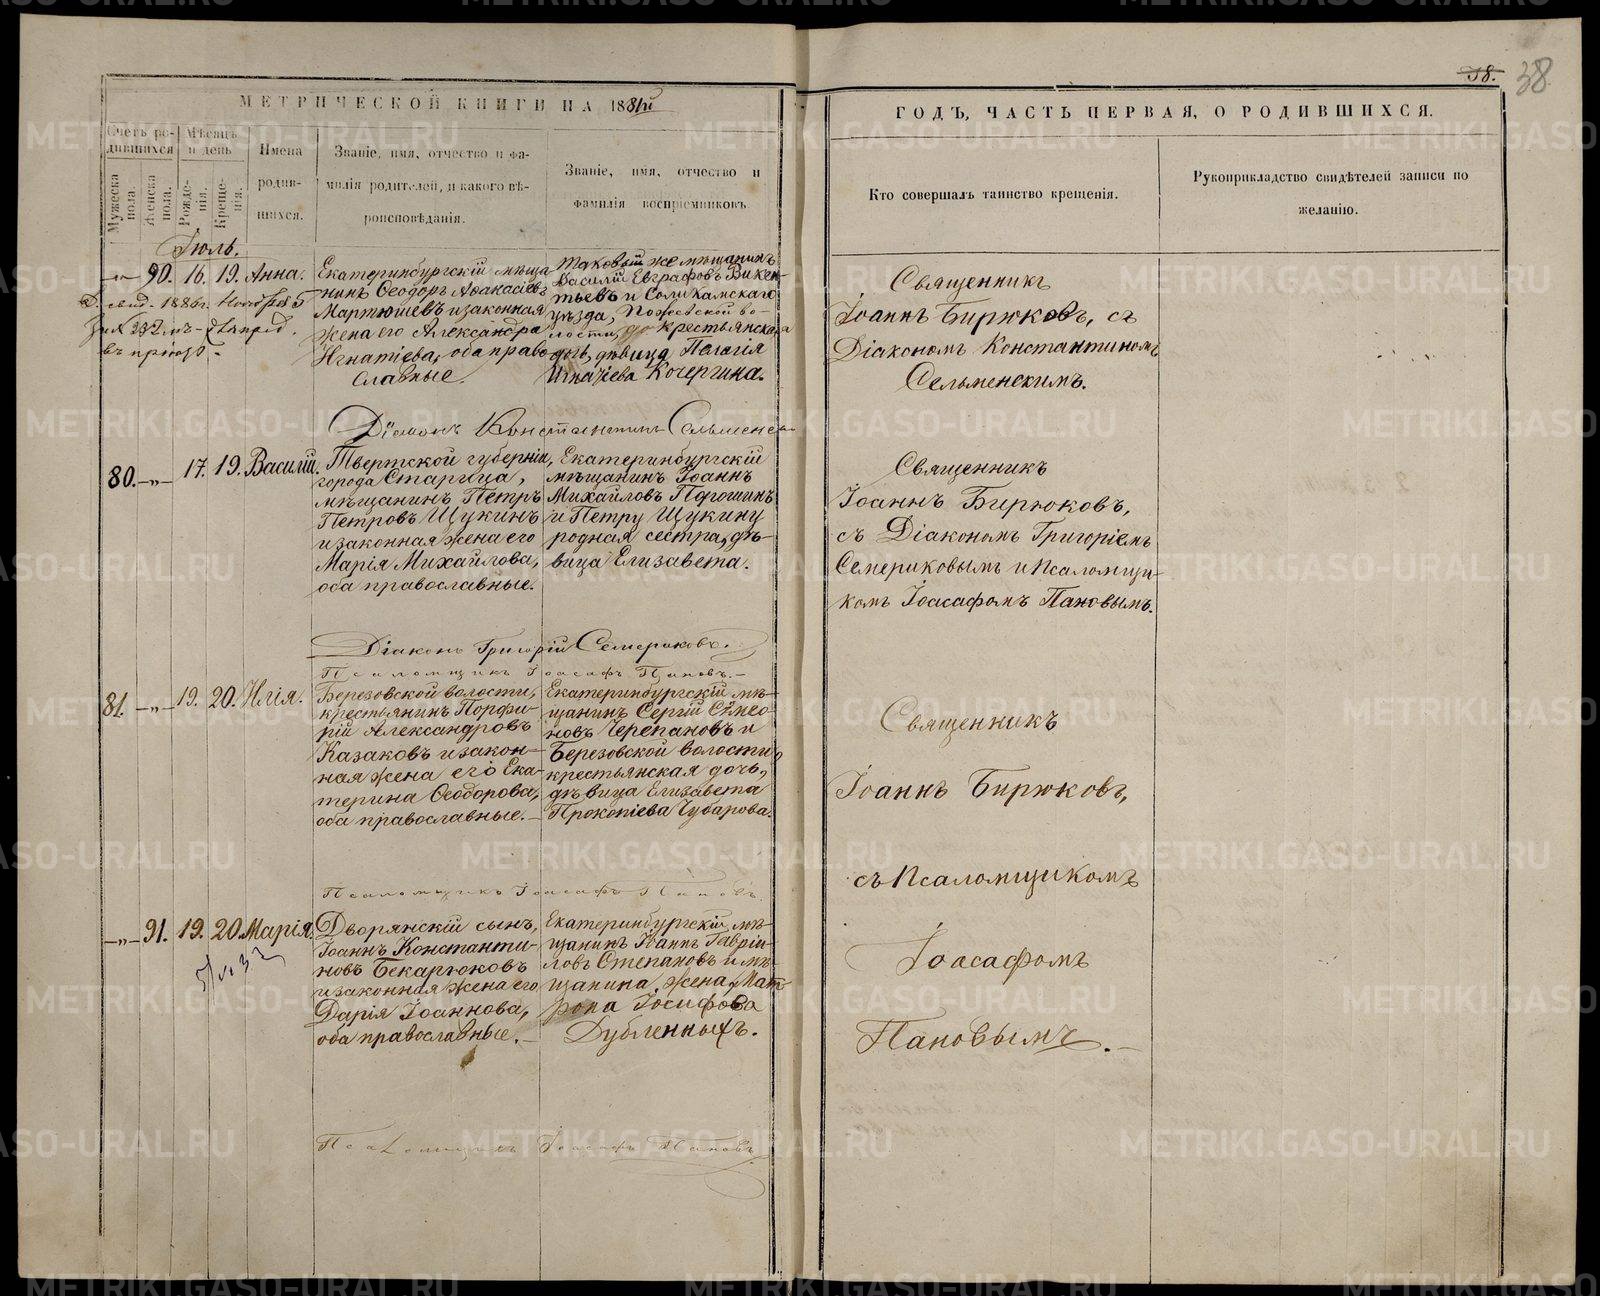 38.
38
МЕТРИЧЕСКОЙ КНИГИ НА 1881й
ГОДЪ, ЧАСТЬ ПЕРВАЯ, О РОДИВШИХСЯ.
Счетъ ро-
дившихся
Мужеска
пола.
Женска
пола.
Мѣсяцъ
и день
Рожде-
нія.
Креще-
нія.
Имена
родив-
шихся.
Званіе, имя, отчество и фа-
милія родителей, и какого вѣ-
роисповѣданія.
Званіе, имя, отчество и
фамилія воспріемниковъ.
Кто совершалъ таинство крещенія.
Рукоприкладство свидѣтелей записи по
желанію.
Іюль.
90. 16. 19. Анна.
Екатеринбургскій мѣща
нинъ Ѳеодоръ Аѳанасіевъ
Мартюшевъ и законная
жена его Александра
Игнатіева, оба право
славные.
Таковый же мѣщанинъ
Василій Евграфовъ Викен-
тьевъ и Соликамскаго
уѣзда, Пожевской во-
лости, крестьянская
дочь, дѣвица Пелагія
Кочергина.
Священникъ
Іоаннъ Бирюковъ, съ
Діакономъ Константиномъ
Сельменскимъ.
Діаконъ Константинъ Сельменск
80. -„- 17. 19. Василій.
Твертской губерніи,
города Старица,
мѣщанинъ Петръ
Петровъ Щукинъ
и законная жена его
Марія Михайлова,
оба православные.
Екатеринбургскій
мѣщанинъ Іоаннъ
Михайловъ
и Петру Щукину
родная сестра, дѣ-
вица Елизавета.
Священникъ
Іоаннъ Бирюковъ,
съ Діакономъ Григоріемъ
Семериковымъ и Псаломщи-
комъ Іоасафомъ Пановымъ.
Діаконъ Григорій Семериковъ.
Псаломщикъ Іоасафъ Пановъ.
81. -„- 19. 20. Илія.
Березовской волости,
крестьянинъ Порфи-
рій Александровъ
Казаковъ и закон-
ная жена его Ека-
терина Ѳеодорова,
оба православные.
Екатеринбургскій мѣ-
щанинъ Сергій Сѵмео-
новъ Черепановъ и
Березовской волости,
крестьянская дочь,
дѣвица Елизавета
Прокопіева Чубарова.
Священникъ
Іоаннъ Бирюковъ,
съ Псаломщикомъ
Іоасафомъ
Пановымъ.
Псаломщикъ Іоасафъ Пановъ.
-„- 91. 19. 20. Марія.
Дворянскій сынъ,
Іоаннъ Константи-
новъ Бекарюковъ
и законная жена его
Дарія Іоаннова,
оба православные.
Екатеринбургскій мѣ-
щанинъ Іоаннъ Гавріи-
ловъ Степановъ и мѣ-
щанина жена Мат-
рона Іосифова
Дубленныхъ.
Псаломщикъ Іоасафъ Пановъ.
METRIKI.GASO-URAL.RU